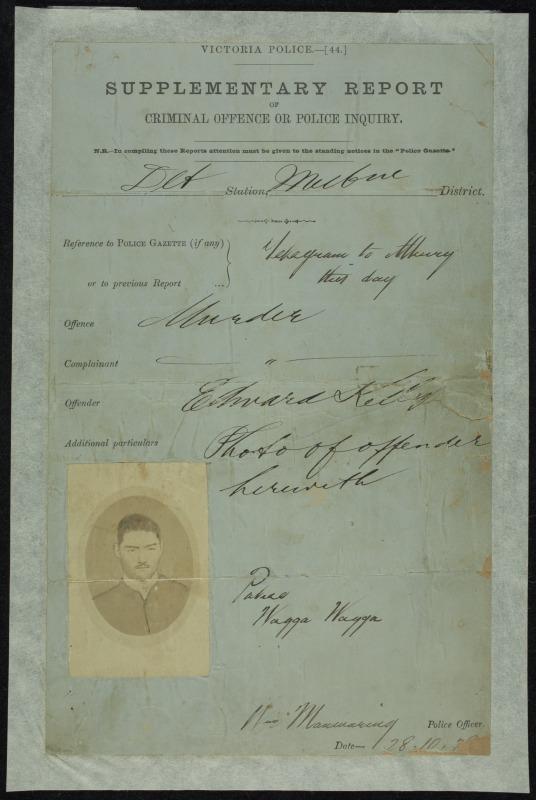 VICTORIA POLICE.—[44.]
SUPPLEMENTARY REPORT
OF
CRIMINAL OFFENCE OR POLICE INQUIRY.
N.B.—In compiling these Reports attention must be given to the standing notices in the "Police Gazette."
Det Station, Melbne District.
Reference to POLICE GAZETTE (if any)
or to previous Report ...
Telegram to Albury
this day
Offence Murder
Complainant "
Offender Edward Kelly
Additional particulars Photo of offender
herewith
Police
Wagga Wagga
Mainwaring Police Officer.
Date— 28.10.7